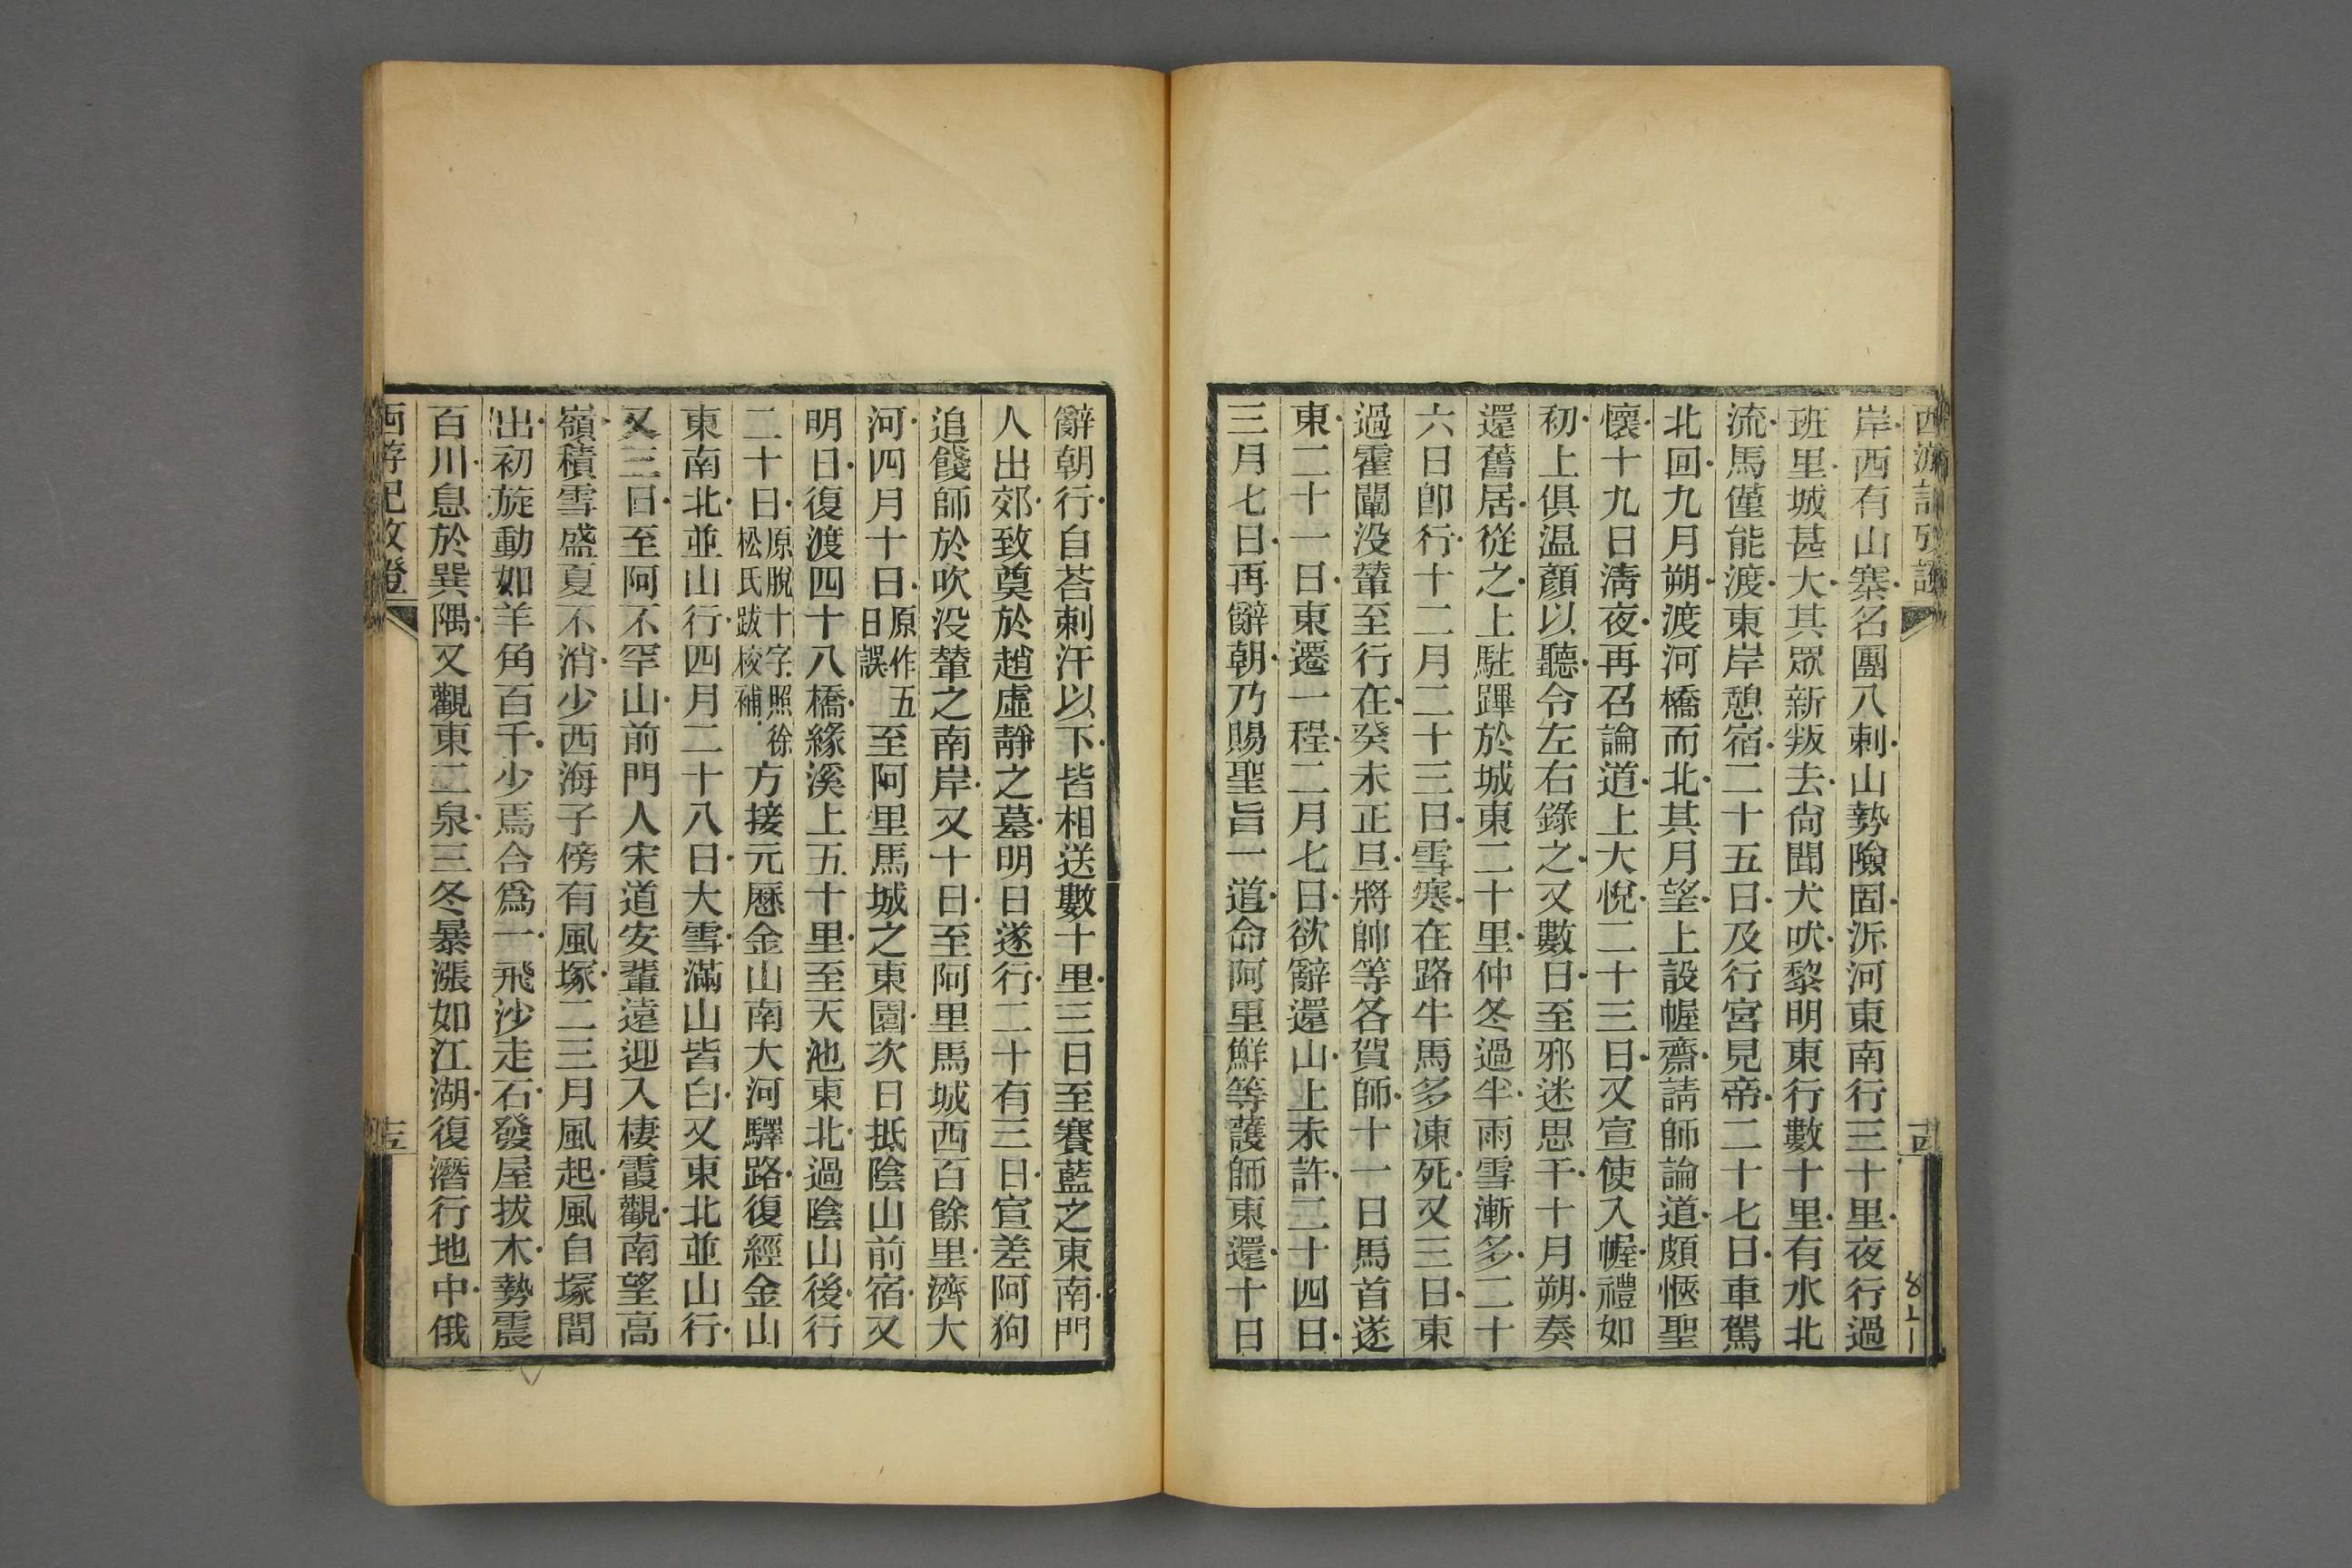 西游記攷證
十四
岸西有山寨名團八剌山勢險固泝河東南行三十里夜行過
班里城甚大其眾新叛去尙聞犬吠黎明東行數十里有水北
流馬僅能渡東岸憩宿二十五日及行宮見帝二十七日車駕
北回九月朔渡河橋而北其月望上設幄齋請師論道頗愜聖
懷十九日淸夜再召論道上大悅二十三日又宣使入幄禮如
初上俱温顏以聽令左右錄之又數日至邪迷思干十月朔奏
還舊居從之上駐蹕於城東二十里仲冬過半雨雪漸多二十
六日卽行十二月二十三日雪寒在路牛馬多凍死又三日東
過霍闡没輦至行在癸未正旦將帥等各賀師十一日馬首遂
東二十一日東遷一程二月七日欲辭還山上未許二十四日
三月七日再辭朝乃賜聖旨一道命阿里鮮等護師東還十日
辭朝行自荅剌汗以下皆相送數十里三日至賽藍之東南門
人出郊致奠於趙虛靜之墓明日遂行二十有三日宣差阿狗
追餞師於吹没輦之南岸又十日至阿里馬城西百餘里濟大
河四月十日原作五日誤至阿里馬城之東園次日抵陰山前宿又
明日復渡四十八橋緣溪上五十里至天池東北過陰山後行
二十日原脫十字照徐松氏跋校補方接元歷金山南大河驛路復經金山
東南北並山行四月二十八日大雪滿山皆白又東北並山行
又三日至阿不罕山前門人宋道安輩遠迎入棲霞觀南望高
嶺積雪盛夏不消少西海子傍有風塚二三月風起風自塚間
出初旋動如羊角百千少焉合爲一飛沙走石發屋拔木勢震
百川息於巽隅又觀東二泉三冬暴漲如江湖復潛行地中俄
西游記攷證
十五